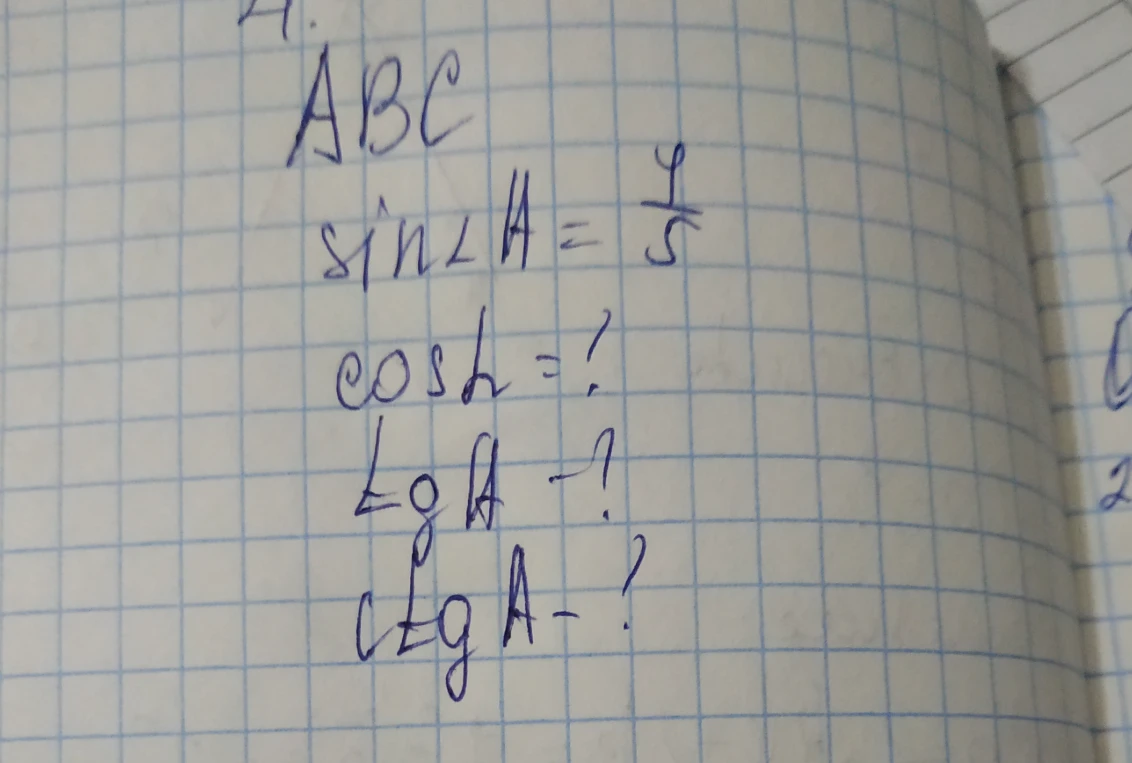 4.
ABC
sin∠A = 4/5
cosh = ?
tgA - ?
ctgA - ?